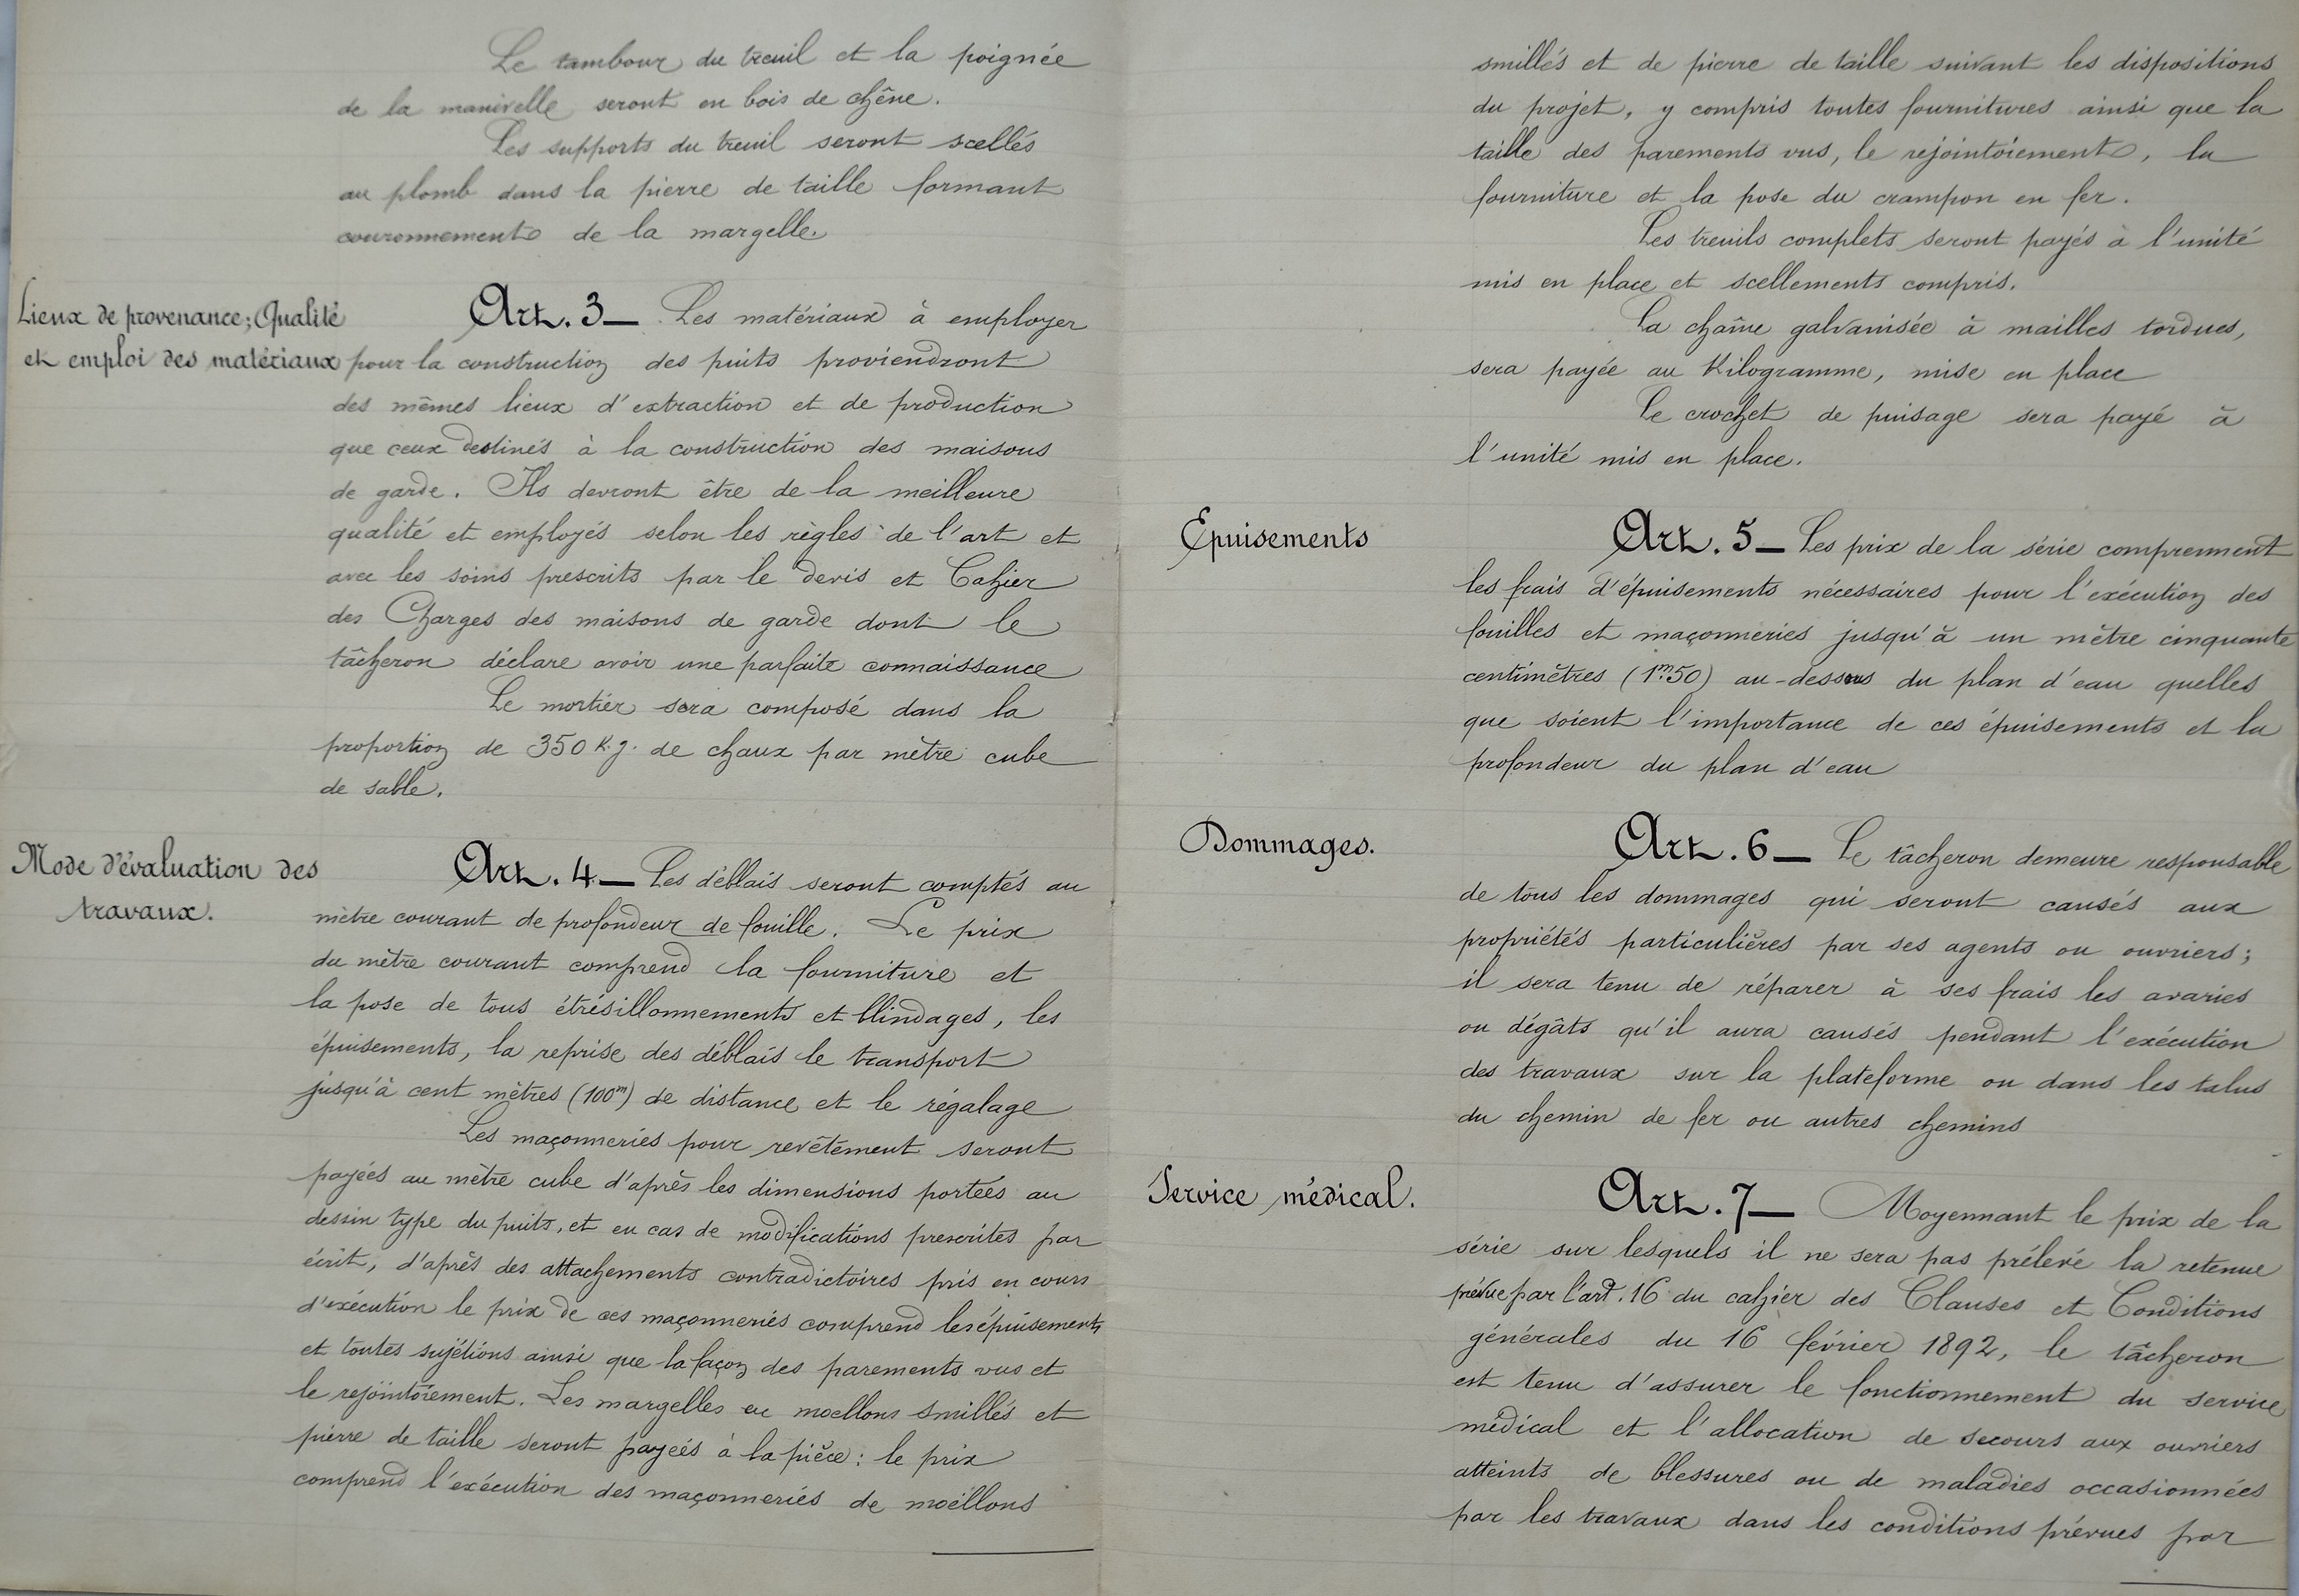 Le tambour du treuil et la poignée
de la manivelle seront en bois de chêne.
Les supports du treuil seront scellés
au plomb dans la pierre de taille formant
couronnement de la margelle.
Lieux de provenance; Qualité
et emploi des matériaux
Art. 3 — Les matériaux à employer
pour la construction des puits proviendront
des mêmes lieux d'extraction et de production
que ceux destinés à la construction des maisons
de garde. Ils devront être de la meilleure
qualité et employés selon les règles de l'art et
avec les soins prescrits par le devis et Cahier
des Charges des maisons de garde dont le
tâcheron déclare avoir une parfaite connaissance
Le mortier sera composé dans la
proportion de 350 K.g. de chaux par mètre cube
de sable.
Mode d'évaluation des
travaux.
Art. 4 — Les déblais seront comptés au
mètre courant de profondeur de fouille. Le prix
du mètre courant comprend la fourniture et
la pose de tous étrésillonnements et blindages, les
épuisements, la reprise des déblais le transport
jusqu'à cent mètres (100m) de distance et le régalage
Les maçonneries pour revêtement seront
payées au mètre cube d'après les dimensions portées au
dessin type du puits, et en cas de modifications prescrites par
écrit, d'après des attachements contradictoires pris en cours
d'exécution le prix de ces maçonneries comprend les épuisements
et toutes sujétions ainsi que la façon des parements vus et
le rejointoiement. Les margelles en moellons smillés et
pierre de taille seront payées à la pièce: le prix
comprend l'exécution des maçonneries de moëllons
smillés et de pierre de taille suivant les dispositions
du projet, y compris toutes fournitures ainsi que la
taille des parements vus, le rejointoiement, la
fourniture et la pose du crampon en fer.
Les treuils complets seront payés à l'unité
mis en place et scellements compris.
La chaîne galvanisée à mailles tordues,
sera payée au Kilogramme, mise en place
Le crochet de puisage sera payé à
l'unité mis en place.
Epuisements
Art. 5 — Les prix de la série comprennent
les frais d'épuisements nécessaires pour l'exécution des
fouilles et maçonneries jusqu'à un mètre cinquante
centimètres (1m.50) au-dessous du plan d'eau quelles
que soient l'importance de ces épuisements et la
profondeur du plan d'eau
Dommages.
Art. 6 — Le tâcheron demeure responsable
de tous les dommages qui seront causés aux
propriétés particulières par ses agents ou ouvriers;
il sera tenu de réparer à ses frais les avaries
ou dégâts qu'il aura causés pendant l'exécution
des travaux sur la plateforme ou dans les talus
du chemin de fer ou autres chemins
Service médical.
Art. 7 — Moyennant le prix de la
série sur lesquels il ne sera pas prélevé la retenue
prévue par l'art. 16 du cahier des Clauses et Conditions
générales du 16 février 1892, le tâcheron
est tenu d'assurer le fonctionnement du service
médical et l'allocation de secours aux ouvriers
atteints de blessures ou de maladies occasionnées
par les travaux dans les conditions prévues par